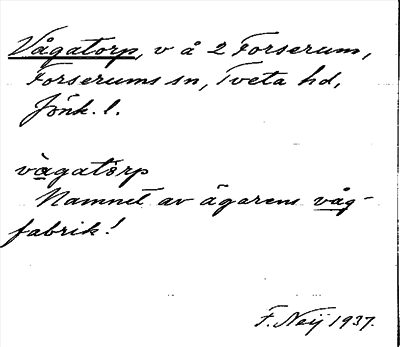 Vågatorp, v å 2 Forserum,
Forserums sn, Tveta hd,
Jönk. l.
vàgatòrp
Namnet av ägarens våg-
fabrik!
F. Neij 1937.